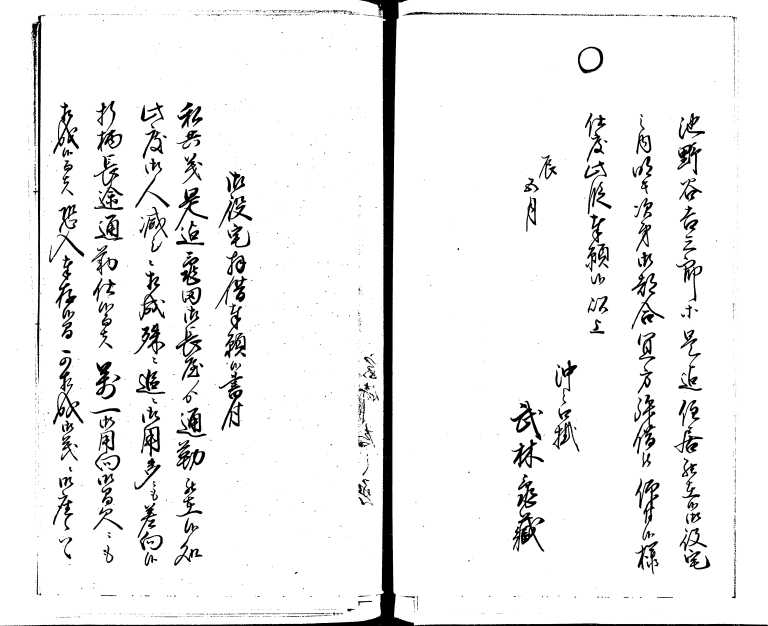 池野谷吉三郎等是迄住居罷在候御役宅
之内明キ次第御都合宜方拝借被仰付候様
仕度此段奉願候以上
辰
五月
沖之口掛
武林亀蔵
御役宅拝借奉願候書付
私共義是迄亀田御長屋ゟ通勤罷在候処
此度御人減ニ相成殊ニ追々御用多ニも差向候
折柄長途通勤仕候而者万一御用向御間欠ニも
相成候而者恐入奉存候間可相成御義ニ御座候ハヽ